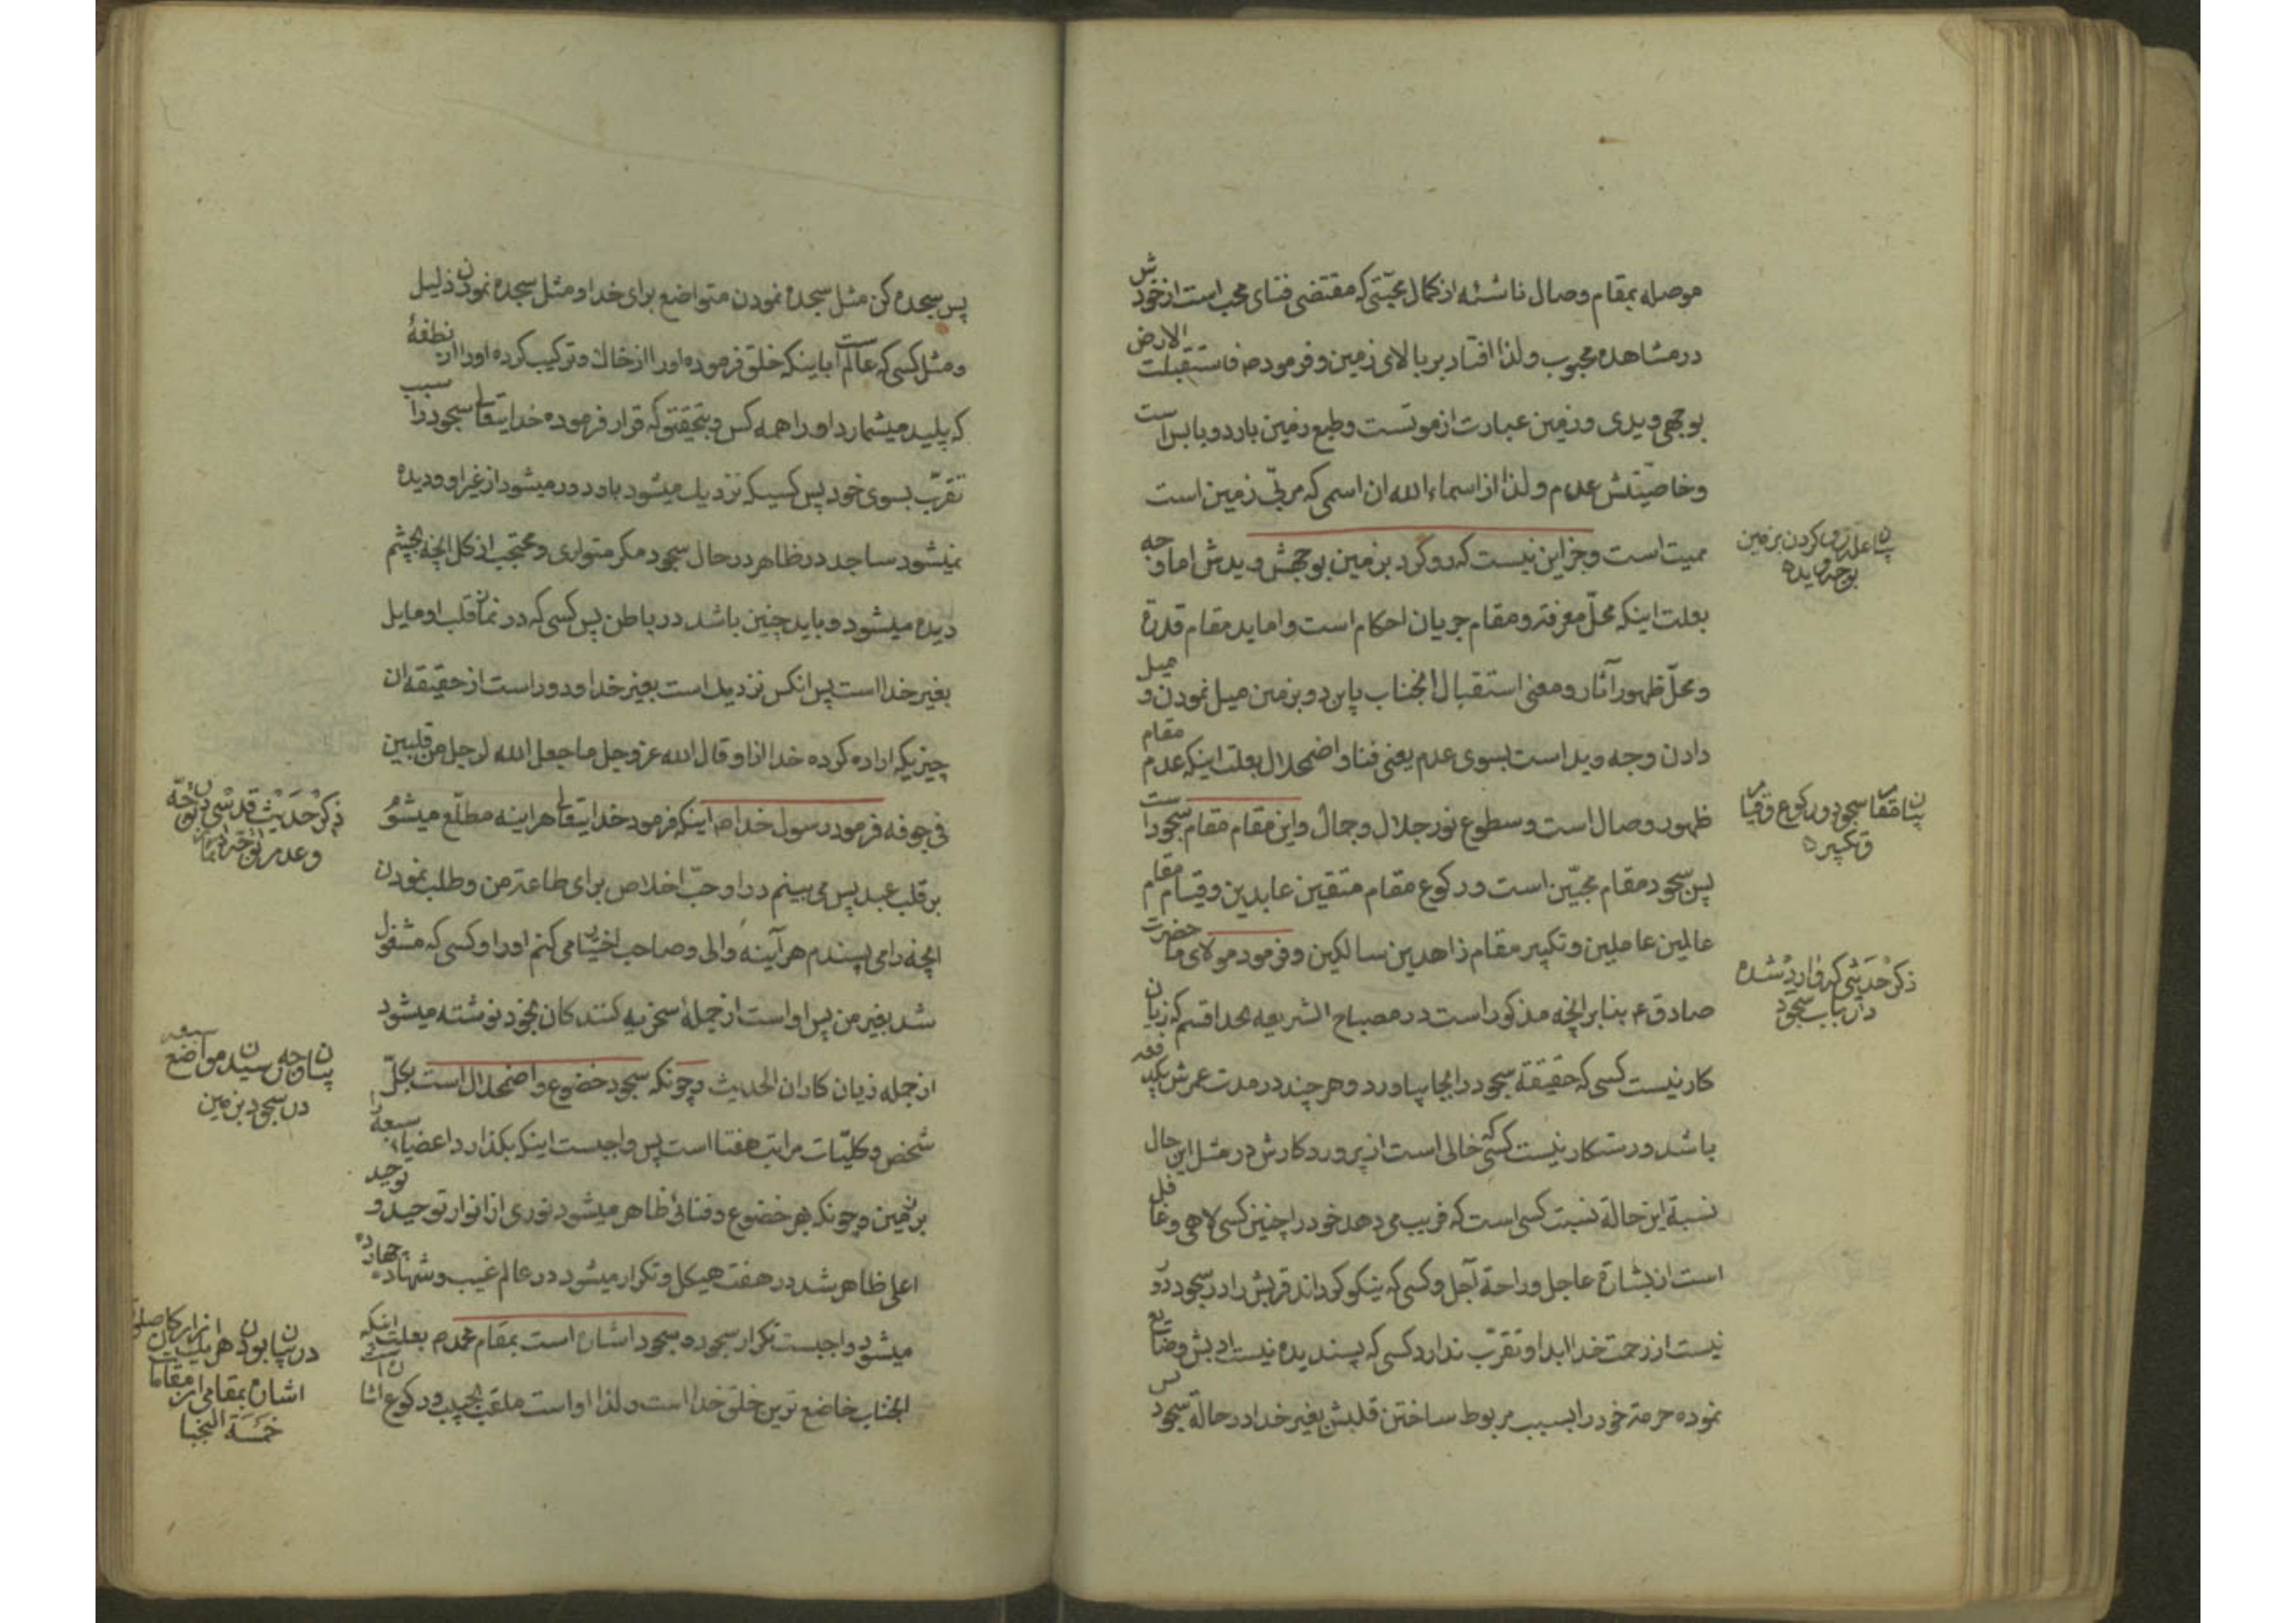 موصله بمقام وصال ناشئه از کمال محبّتی که مقتضی فنای محب است از خودش
در مشاهده محبوب ولذا افتاد بر بالای زمین و فرمود ص فاستقبلت الارض
بوجهی ویدی وزمین عبارت از موتست وطبع زمین بارد ویابس است
وخاصیّتش عدم ولذا از اسماء الله ان اسمی که مربّی زمین است
ممیت است وجز این نیست که رو کرد بزمین بوجهش ویدش اما وجه
بعلت اینکه محلّ معرفة ومقام جریان احکام است واما ید مقام قدرة
ومحلّ ظهور آثار ومعنی استقبال انجناب باین دو بزمین میل نمودن و میل
دادن وجه وید است بسوی عدم یعنی فنا واضمحلال بعلت اینکه عدم مقام
ظهور وصال است وسطوع نور جلال وجمال واین مقام مقام سجود است
پس سجود مقام محبّین است ورکوع مقام متقین عابدین وقیام مقام
عالمین عاملین وتکبیر مقام زاهدین سالکین وفرمود مولای ما حضرت
صادق ع بنابر انچه مذکور است در مصباح الشریعه بخدا قسم که زیان
کار نیست کسی که حقیقة سجود را بجا بیاورد وهر چند در مدت عمرش یکدفعه
باشد ورستکار نیست کسی که خالی است از پروردکارش در مثل این حال
نسبة این حالة نسبت کسی است که فریب می دهد خود را چنین کسی لاهی وغافل
است از بشارة عاجل وراحة آجل وکسی که نیکو کرداند قربش را در سجود دور
نیست از رحمت خدا ابدا وتقرّب ندارد کسی که پسندیده نیست ادبش وضایع
نموده حرمة خود را بسبب مربوط ساختن قلبش بغیر خدا در حالة سجود پس
بیان علة رو کردن بزمین
بوجه و یده
بیان مقام سجود ورکوع وقیام
وتکبیره
ذکر حدیثی که وارد شده
در باب سجود
پس سجده کن مثل سجده نمودن متواضع برای خدا ومثل سجده نمودن ذلیل
ومثل کسی که عالم است باینکه خلق فرموده او را از خاك وترکیب کرده او را از نطفهٔ
که پلید میشمارد او را همه کس وبتحقیقی که قرار فرموده خدایتعالی سجود را سبب
تقرّب بسوی خود پس کسیکه نزدیك میشود باو دور میشود از غیر او ودیده
نمیشود ساجد در ظاهر در حال سجود مکر متواری ومحتجب از کل انچه بچشم
دیده میشود وباید چنین باشد در باطن پس کسی که در نماز قلب او مایل
بغیر خدا است پس انکس نزدیك است بغیر خدا ودور است از حقیقة ان
چیزیکه اراده کرده خدا از او قال الله عز وجل ما جعل الله لرجل من قلبین
فی جوفه فرمود رسول خدا ص اینکه فرمود خدایتعالی هر اینه مطلّع میشوم
بر قلب عبد پس می بینم در او حبّ اخلاص برای طاعة من وطلب نمودن
انچه را می پسندم هر آینه والی وصاحب اختیار می کنم او را وکسی که مشغول
شد بغیر من پس او است از جملهٔ سخریه کنندکان بخود نوشته میشود
از جمله زیان کاران الحدیث وچونکه سجود خضوع واضمحلال است بکلّ
شخص وکلیّات مراتب هفتا است پس واجبست اینکه بکذارد اعضاء سبعه را
بزمین وچونکه بهر خضوع وفنائی ظاهر میشود نوری از انوار توحید و توحید
اعلی ظاهر شد در هفت هیکل وتکرار میشود در عالم غیب وشهاده چهارده
میشود واجبست تکرار سجود وسجود اشاره است بمقام محمد ص بعلت اینکه
انجناب خاضع ترین خلق خدا است ولذا او است ملقب بحبیب ورکوع اشاره است
ذکر حدیث قدسی در توجّه
وعدم توجّه در نماز
بیان وجه رسیدن مواضع سبعه
در سجود بزمین
در بیان بودن هریك از ارکان صلوة
اشاره بمقامی از مقامات
خمسة النجبا